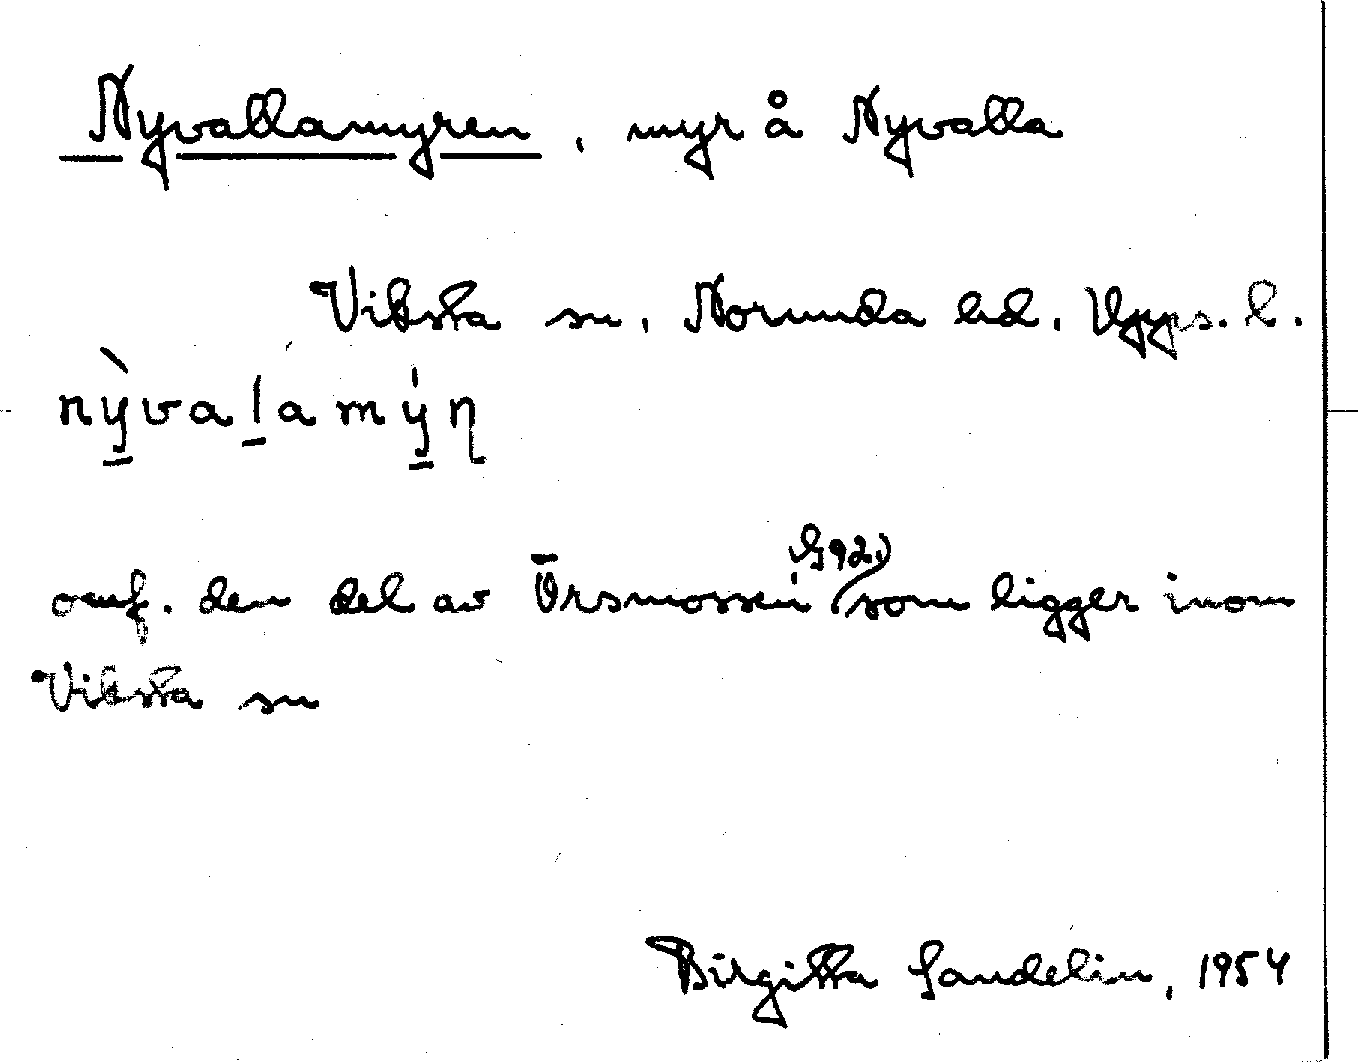 Nyvallamyren, myr å Nyvalla
Viksta sn, Norunda hd. Upps. l.
nỳvalamýn
omf. den del av Örsmossen (G92) som ligger inom
Viksta sn
Birgitta Sandelin, 1954